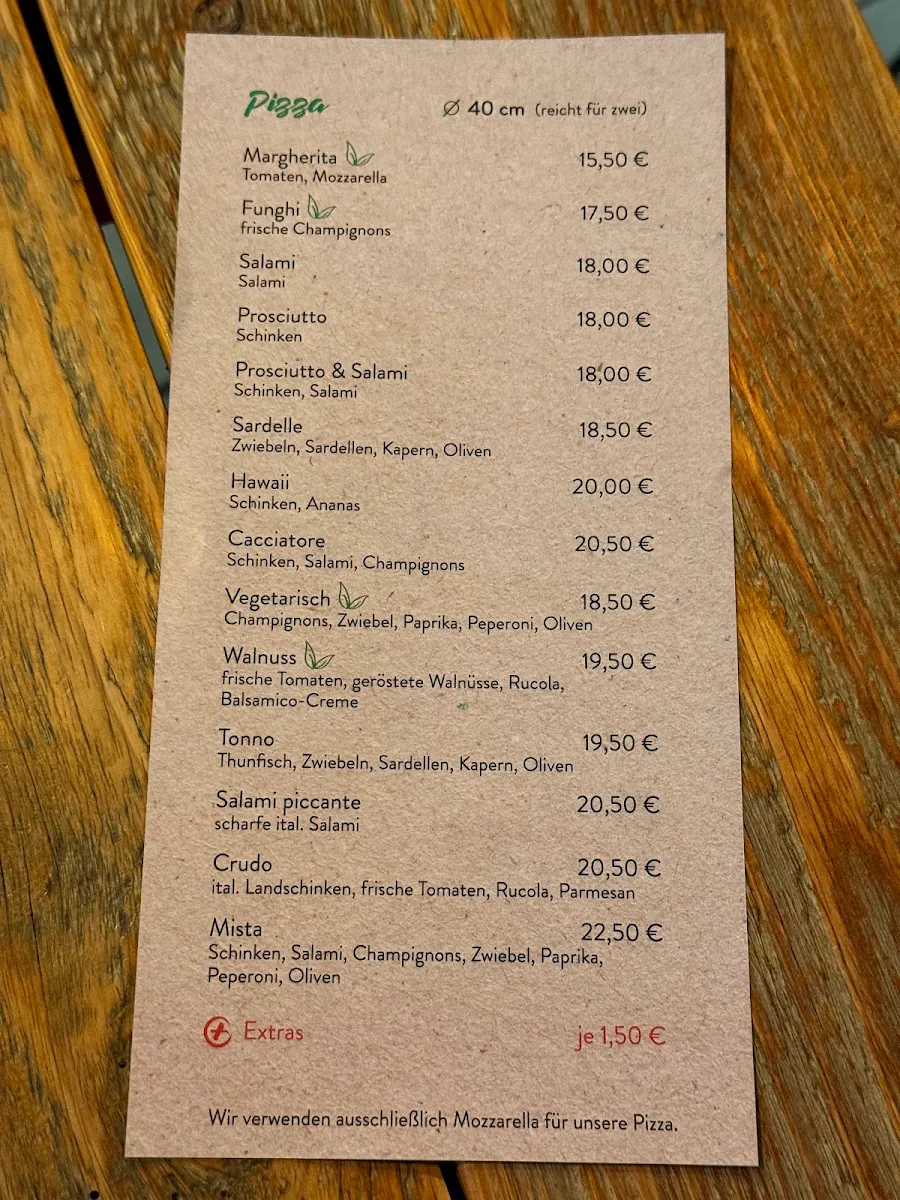 Pizza Ø 40 cm (reicht für zwei)
Margherita 15,50 €
Tomaten, Mozzarella
Funghi 17,50 €
frische Champignons
Salami 18,00 €
Salami
Prosciutto 18,00 €
Schinken
Prosciutto & Salami 18,00 €
Schinken, Salami
Sardelle 18,50 €
Zwiebeln, Sardellen, Kapern, Oliven
Hawaii 20,00 €
Schinken, Ananas
Cacciatore 20,50 €
Schinken, Salami, Champignons
Vegetarisch 18,50 €
Champignons, Zwiebel, Paprika, Peperoni, Oliven
Walnuss 19,50 €
frische Tomaten, geröstete Walnüsse, Rucola,
Balsamico-Creme
Tonno 19,50 €
Thunfisch, Zwiebeln, Sardellen, Kapern, Oliven
Salami piccante 20,50 €
scharfe ital. Salami
Crudo 20,50 €
ital. Landschinken, frische Tomaten, Rucola, Parmesan
Mista 22,50 €
Schinken, Salami, Champignons, Zwiebel, Paprika,
Peperoni, Oliven
+ Extras je 1,50 €
Wir verwenden ausschließlich Mozzarella für unsere Pizza.